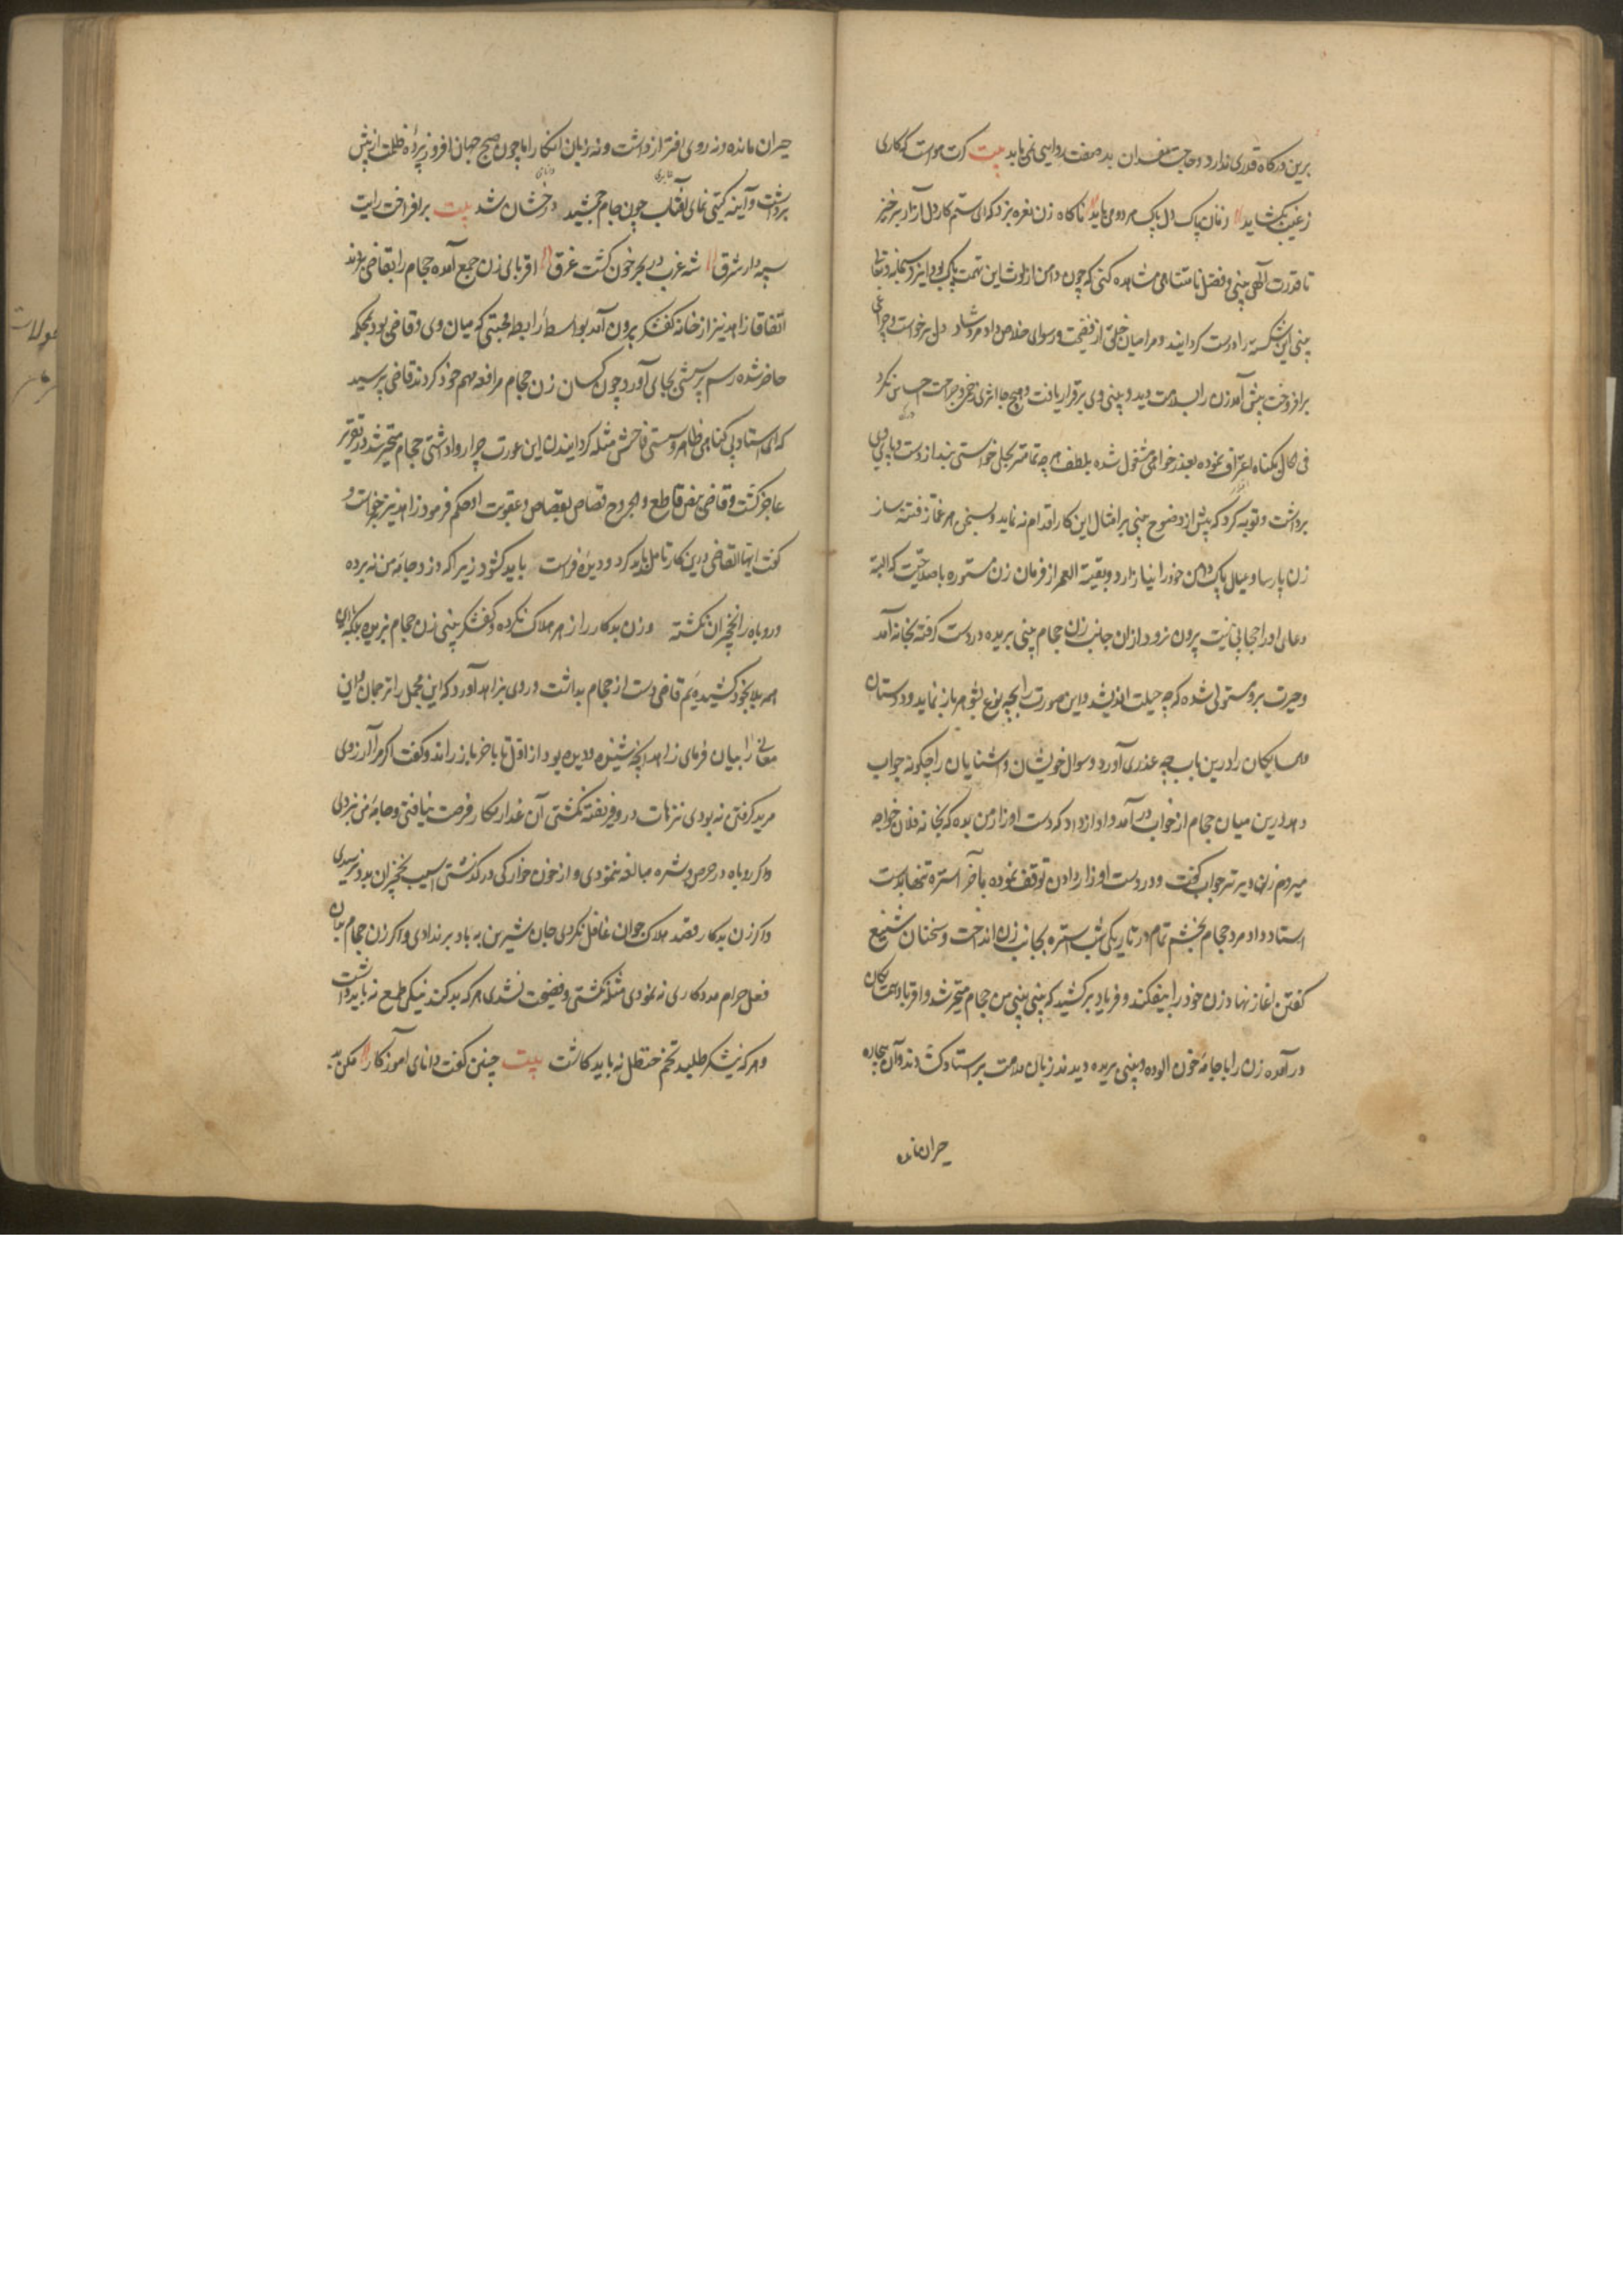 برین درگاه قدری ندارد و حاجت مفسدان بدصفت روایی نمی یابد بیت گرت هواست که کاری
ز غیب بگشاید زبان پاک دل پاک هر دو می باید ناگاه زن نعره بزد که ای ستمکار دل آزار برخیز
تا قدرت الهی بینی و فضل نامتناهی مشاهده کنی که چون دامن از لوث این تهمت پاک بود ایزد سبحانه و تعالی
بینی این شکسته را درست گردانید و مرا میان خلق از فضیحت و رسوای خلاص داد مرد شاد دل برخواست و چراغی
برافروخت پیش آمد زن را بسلامت دید و بینی وی برقرار یافت و هیچ جا اثری زخم و جراحت احساس نکرد
فی الحال بگناه اعتراف نموده بعذرخواهی مشغول شده بلطف هر چه تمامتر بحلی خواستی بند از دست و پای وی
برداشت و توبه کرد که پیش از وضوح بینی بر امثال این کار اقدام نه نماید و بسخن هر غماز فتنه ساز
زن پارسا و عیال پاک دامن خود را نیازارد و بقیة العمر از فرمان زن مستوره باصلاحیت که البته
دعای او را حجابی نیست بیرون نرود و ازان جانب زن حجام بینی بریده در دست گرفته بخانه آمد
و حیرت برو مستولی شده که چه حیلت اندیشد و این صورت را بچه نوع بشوهر باز نماید و دوستان
و همسایگان را درین باب چه عذری آورد و سوال خویشان و اشنایان را چگونه جواب
دهد درین میان حجام از خواب در آمد و آواز داد که دست اوزار من بده که بخانه فلان خواجه
میروم زن دیرتر جواب گفت و در دست اوزار دادن توقف نموده بآخر استره تنها بدست
استاد داد مرد حجام بخشم تمام در تاریکی شب استره بجانب زن انداخت و سخنان شنیع
گفتن اغاز نهاد زن خود را بیفکند و فریاد برکشید که بینی بینی من حجام متحیر شد و اقربا و همسایکان
در آمده زن را با جامه خون الوده و بینی بریده دیدند زبان ملامت بر استاد کشادند و آن بیچاره
حیران مانده
حیران مانده نه روی اقرار داشت و نه زبان انکار اما چون صبح جهان افروز پرده ظلمت از پیش
برداشت و آینه گیتی نمای آفتاب چون جام جمشید درخشان شد بیت برافراخت رایت
سپه دار شرق شه غرب در بحر خون گشت غرق اقربای زن جمع آمده حجام را بقاضی بردند
اتفاقا زاهد نیز از خانه کفشگر بیرون آمد بواسطه رابطه محبتی که میان وی و قاضی بود بمحکمه
حاضر شده رسم پرسشی بجای آورد چون کسان زن حجام مرافعه مهم خود کردند قاضی پرسید
که ای استاد بی گناهی ظاهر و سببی فاحش مثله گردانیدن این عورت چرا روا داشتی حجام متحیر شد در تقریر
عاجز گشت و قاضی بنص قاطع والجروح قصاص بقصاص و عقوبت او حکم فرمود زاهد نیز برخواست و
گفت ایها القاضی درین کار تامل باید کرد و دیده فراست باید گشود زیرا که دزد جامه من نه برده
و روباه را نخچیران نکشته و زن بدکار را زهر هلاک نکرده و کفشگر بینی زن حجام نبریده بلکه این
همه بلا بخود کشیده ایم قاضی دست از حجام بداشت و روی بزاهد آورد که این مجمل را ترجمان و این
معانی را بیان فرمای زاهد آنچه شنیده و دیده بود از اول تا باخر باز راند و گفت اگر مرا آرزوی
مرید گرفتن نه بودی و بترهات دزد فریفته نگشتی آن غدار مکار فرصت نیافتی و جامه من نبردی
و اگر روباه در حرص و شره مبالغه ننمودی و از خون خوارگی در گذشتی اسیب نخچیران بدو نرسیدی
و اگر زن بدکار قصد هلاک جوان غافل نکردی جان شیرین به باد برندادی و اگر زن حجام بران
فعل حرام مددکاری نه نمودی مثله نگشتی و فضیحت نشدی هر که بد کند نیکی طمع نه باید داشت
و هر که نیشکر طلبد تخم حنظل نه باید کاشت بیت چنین گفت دانای اموزگار مکن بد